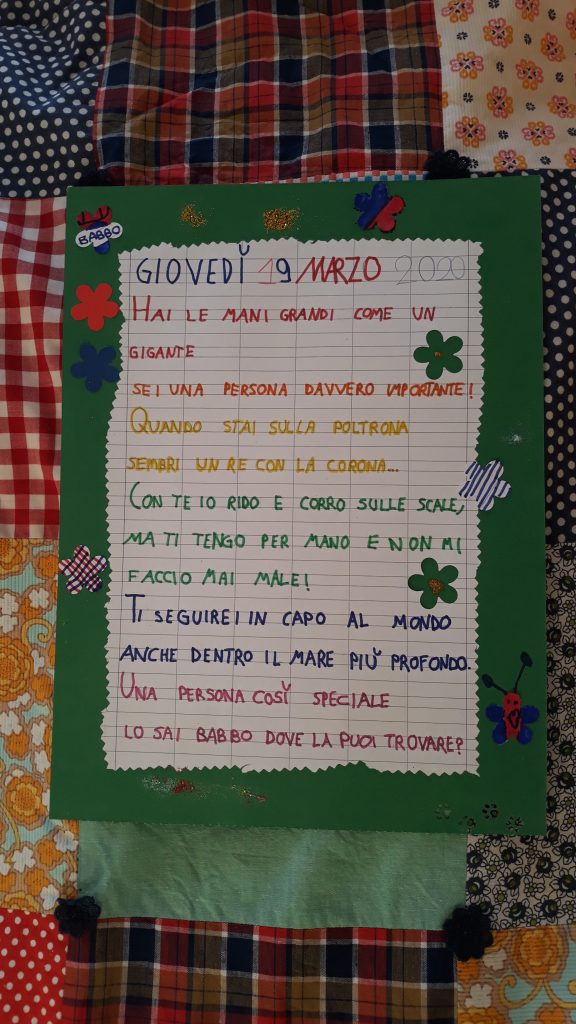 BABBO
GIOVEDÌ 19 MARZO 2020
HAI LE MANI GRANDI COME UN
GIGANTE
SEI UNA PERSONA DAVVERO IMPORTANTE!
QUANDO STAI SULLA POLTRONA
SEMBRI UN RE CON LA CORONA...
CON TE IO RIDO E CORRO SULLE SCALE,
MA TI TENGO PER MANO E NON MI
FACCIO MAI MALE!
TI SEGUIREI IN CAPO AL MONDO
ANCHE DENTRO IL MARE PIÙ PROFONDO.
UNA PERSONA COSÌ SPECIALE
LO SAI BABBO DOVE LA PUOI TROVARE?